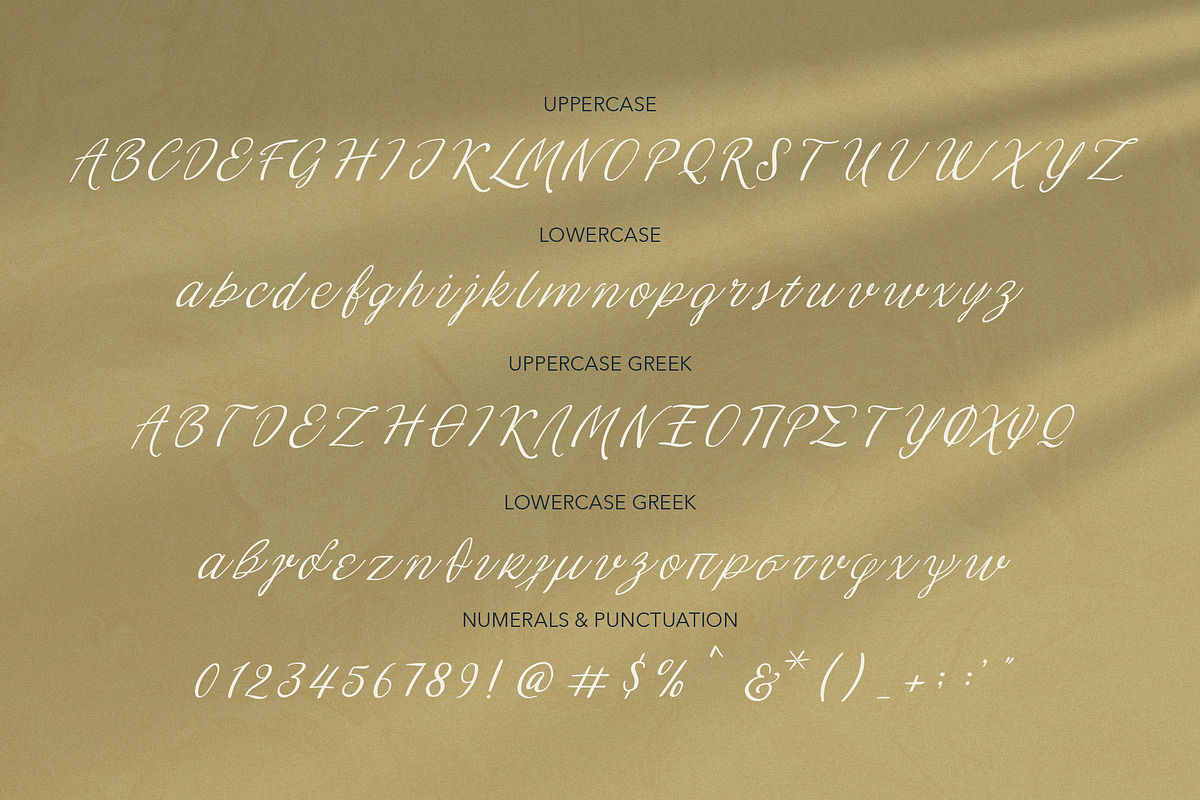 UPPERCASE
ABCDEFGHIJKLMNOPQRSTUVWXYZ
LOWERCASE
abcdefghijklmnopqrstuvwxyz
UPPERCASE GREEK
ΑΒΓΔΕΖΗΘΙΚΛΜΝΞΟΠΡΣΤΥΦΧΨΩ
LOWERCASE GREEK
αβγδεζηθικλμνξοπρστυφχψω
NUMERALS & PUNCTUATION
0123456789!@#$%^&*()_+;:'"